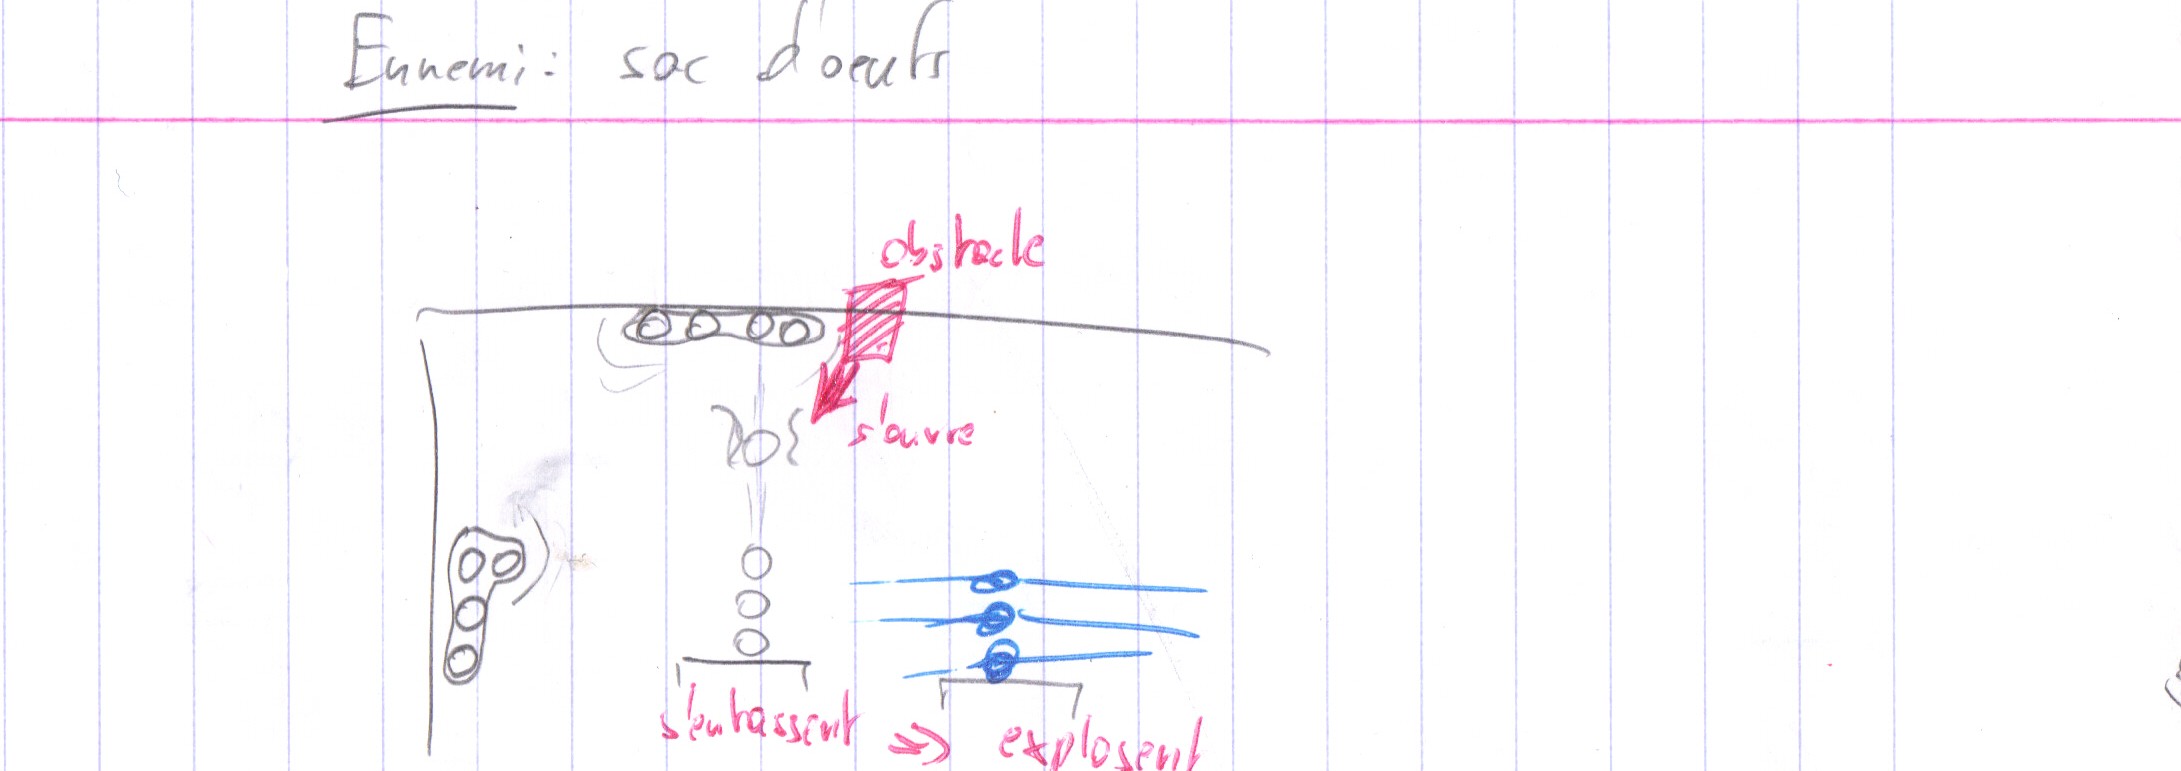 Ennemi: sac d'oeufs
obstacle
s'ouvre
s'entassent => explosent